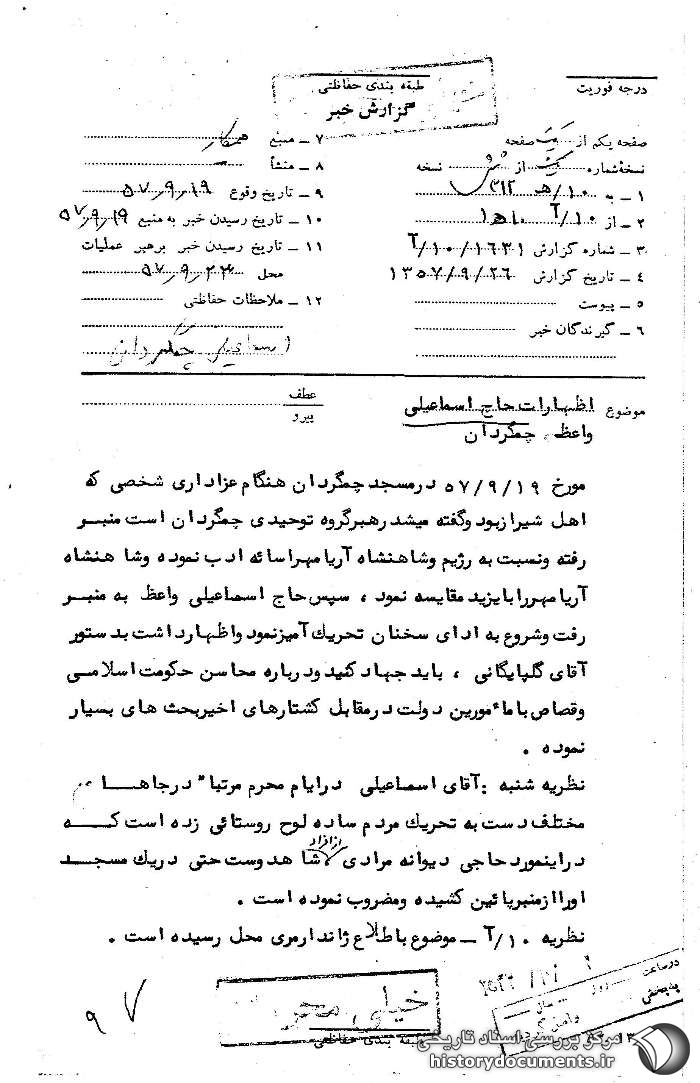 درجه فوریت
طبقه بندی حفاظتی
گزارش خبر
صفحه یکم از یک صفحه
نسخهٔ شماره یک از شش نسخه
۱ – به ۱۰/هـ ۳۱۲
۲ – از ۱۰/آ ۱۰هـ۱
۳ – شماره گزارش ۱۶۳۱/۱۰/آ
۴ – تاریخ گزارش ۱۳۵۷/۹/۲۶
۵ – پیوست
۶ – گیرندگان خبر
۷ – منبع همکار
۸ – منشأ
۹ – تاریخ وقوع ۵۷,۹,۱۹
۱۰ – تاریخ رسیدن خبر به منبع ۵۷,۹,۱۹
۱۱ – تاریخ رسیدن خبر برهبر عملیات
محل ۵۷,۹,۲۳
۱۲ – ملاحظات حفاظتی
اسماعیلی چمگردان
موضوع اظهارات حاج اسماعیلی
واعظ . چمگردان
عطف
پیرو
مورخ ۵۷/۹/۱۹ در مسجد چمگردان هنگام عزاداری شخصی که
اهل شیراز بود و گفته میشد رهبر گروه توحیدی چمگردان است منبر
رفته و نسبت به رژیم و شاهنشاه آریامهر اسائه ادب نموده و شاهنشاه
آریامهر را با یزید مقایسه نمود ، سپس حاج اسماعیلی واعظ به منبر
رفت و شروع به ادای سخنان تحریک آمیز نمود و اظهار داشت بدستور
آقای گلپایگانی ، باید جهاد کنید و درباره محاسن حکومت اسلامی
و قصاص با مامورین دولت در مقابل کشتارهای اخیر بحث های بسیار
نموده .
نظریه شنبه : آقای اسماعیلی در ایام محرم مرتبا" در جاهای
مختلف دست به تحریک مردم ساده لوح روستائی زده است که
در اینمورد حاجی دیوانه مرادی از افراد شاهدوست حتی در یک مسجد
او را از منبر پائین کشیده و مضروب نموده است .
نظریه ۱۰/آ – موضوع باطلاع ژاندارمری محل رسیده است .
۹ ۷
خیلی محر
طبقه بندی حفاظتی
در ساعت
روز
به بخش
مرکز بررسی اسناد تاریخی
historydocuments.ir